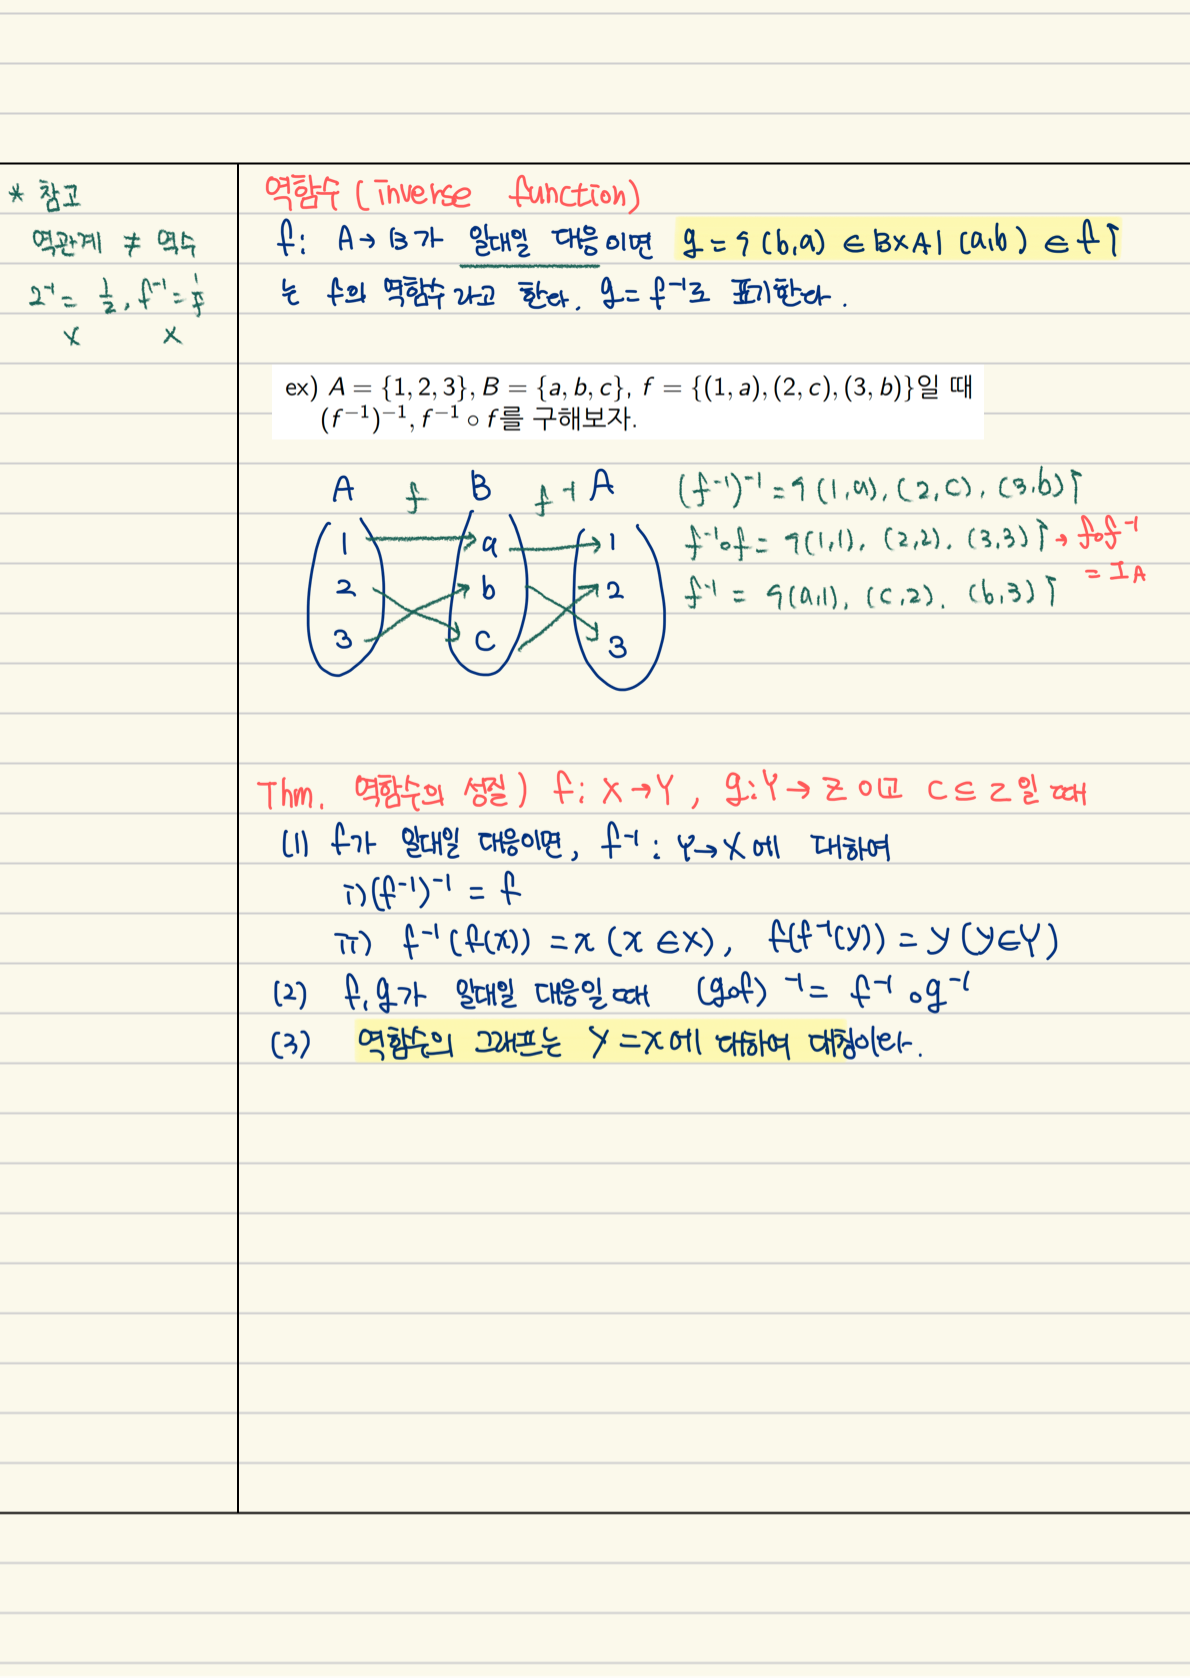 * 참고
역관계 ≠ 역수
2⁻¹ = 1/2, f⁻¹ = 1/f
X X
역함수 (inverse function)
f: A→B가 일대일 대응이면 g = {(b,a) ∈ B×A | (a,b) ∈ f}
는 f의 역함수라고 한다. g = f⁻¹로 표기한다.
ex) A = {1, 2, 3}, B = {a, b, c}, f = {(1, a), (2, c), (3, b)}일 때
(f⁻¹)⁻¹, f⁻¹ ∘ f를 구해보자.
A f B f⁻¹ A (f⁻¹)⁻¹ = {(1,a), (2,c), (3,b)}
1 a 1 f⁻¹∘f = {(1,1), (2,2), (3,3)} → f∘f⁻¹
= I_A
2 b 2 f⁻¹ = {(a,1), (c,2), (b,3)}
3 c 3
Thm. 역함수의 성질) f: X→Y, g: Y→Z 이고 C⊆Z일 때
(1) f가 일대일 대응이면, f⁻¹: Y→X에 대하여
i) (f⁻¹)⁻¹ = f
ii) f⁻¹(f(x)) = x (x∈X), f(f⁻¹(y)) = y (y∈Y)
(2) f, g가 일대일 대응일 때 (g∘f)⁻¹ = f⁻¹∘g⁻¹
(3) 역함수의 그래프는 y=x에 대하여 대칭이다.